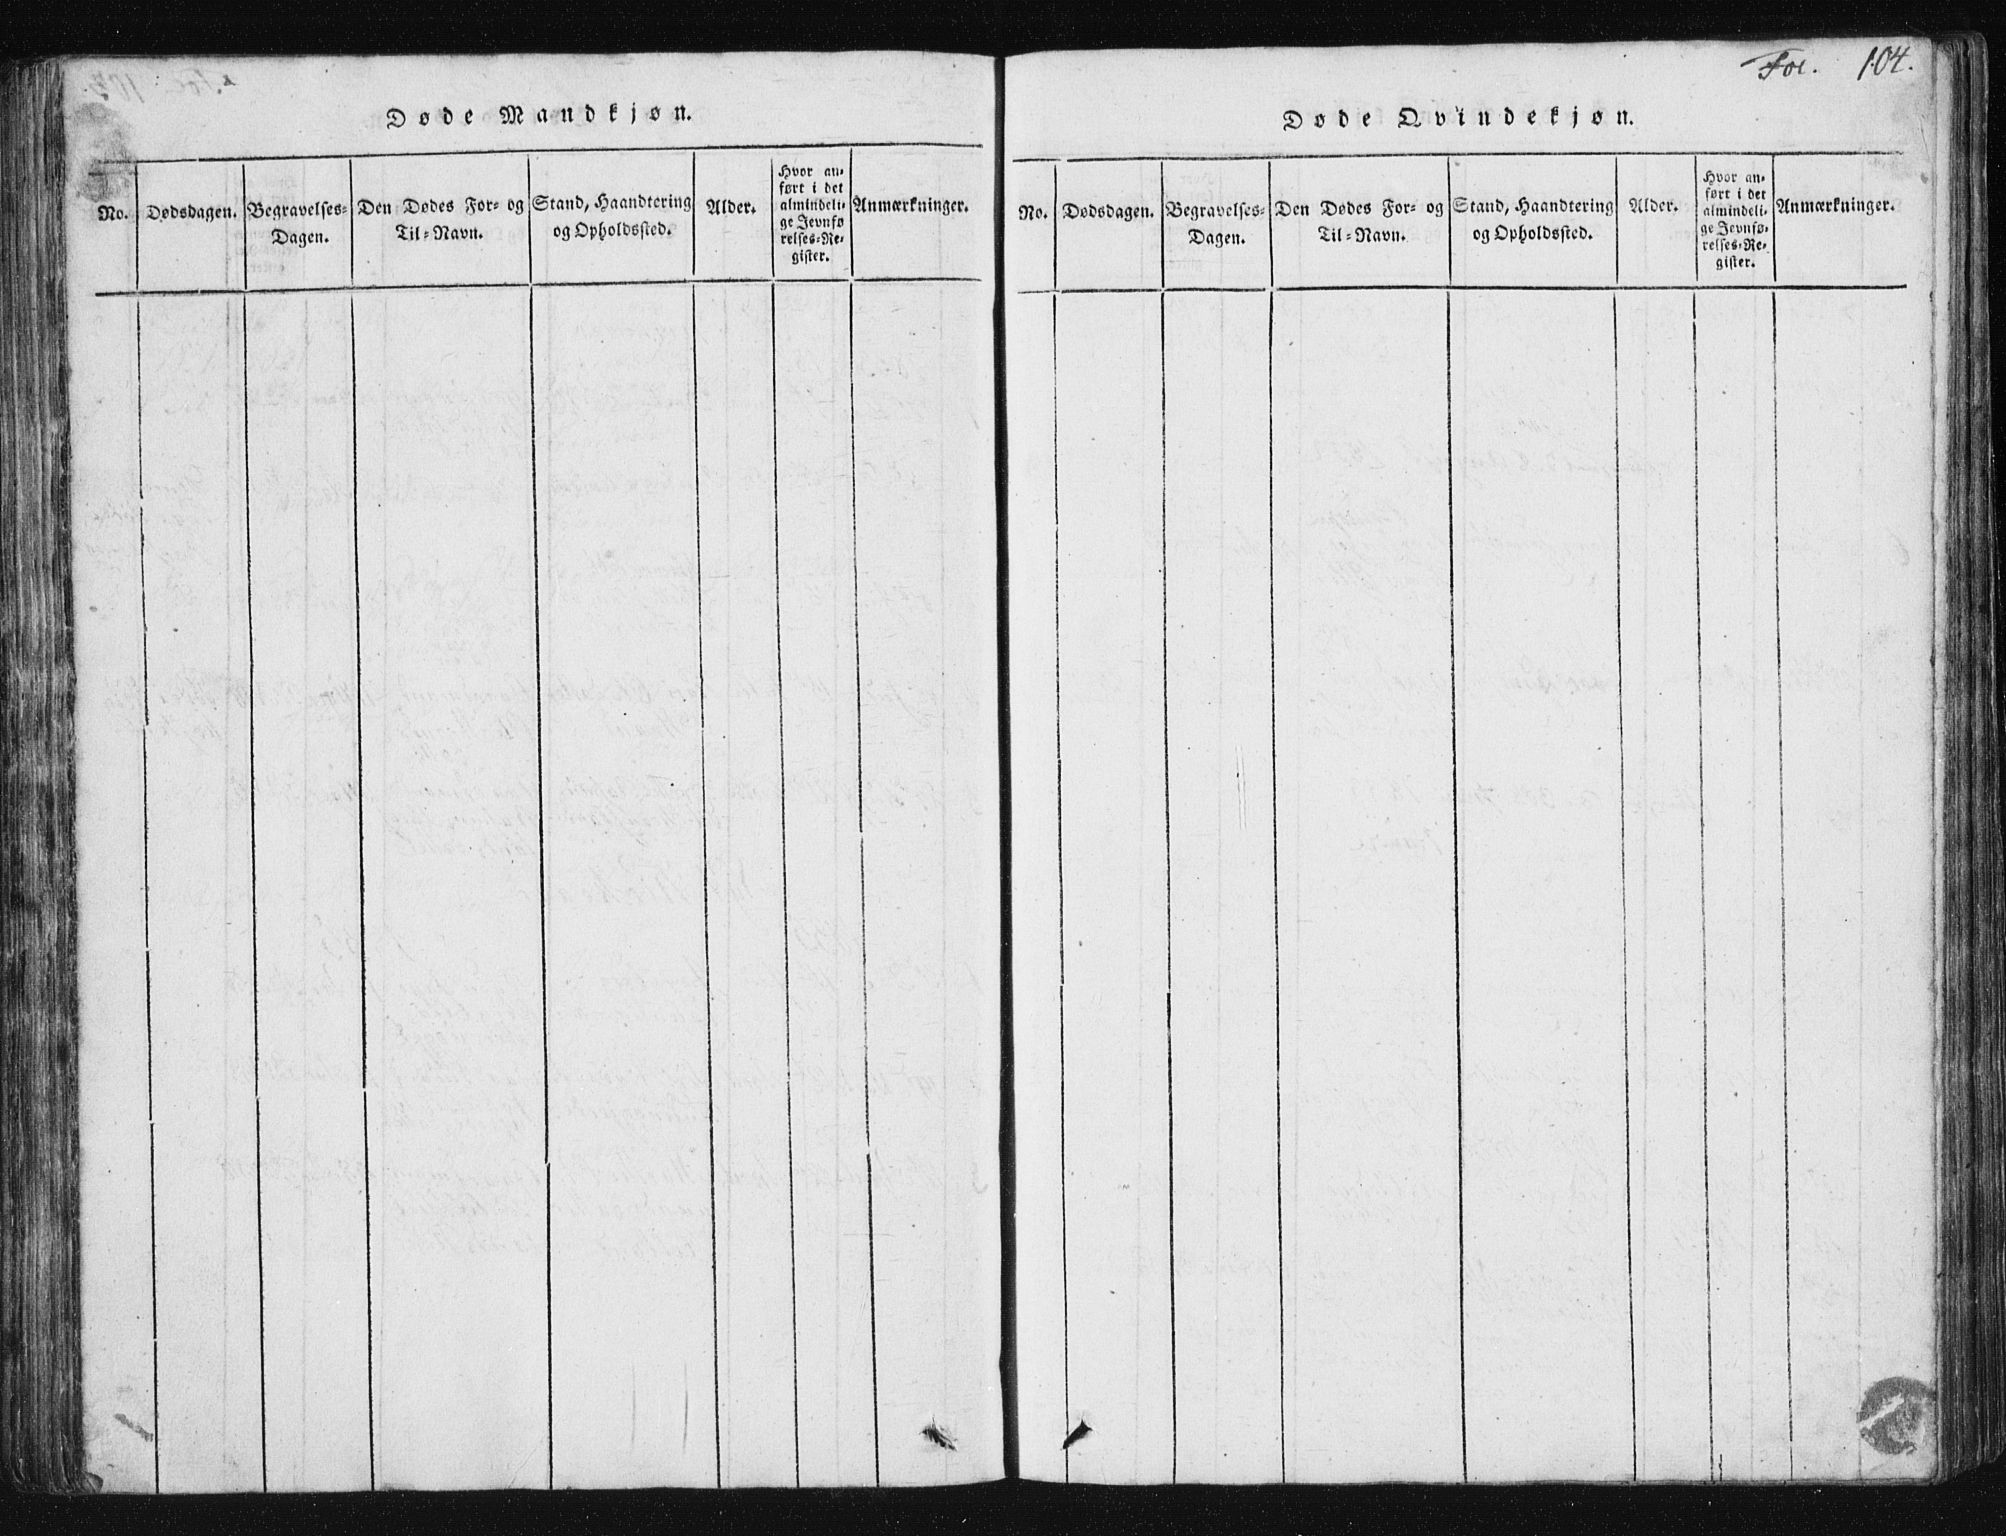 Fol. 104.
Døde Mandkjøn.
No.
Dødsdagen.
Begravelses-
Dagen.
Den Dødes For- og
Til-Navn.
Stand, Haandtering
og Opholdssted.
Alder.
Hvor an-
ført i det
almindeli-
ge Jevnfø
relses-Re-
gister.
Anmærkninger.
Døde Qvindekjøn.
No.
Dødsdagen.
Begravelses-
Dagen.
Den Dødes For- og
Til-Navn.
Stand, Haandtering
og Opholdssted.
Alder.
Hvor an-
ført i det
almindeli-
ge Jevnfø-
relses-Re-
gister.
Anmærkninger.